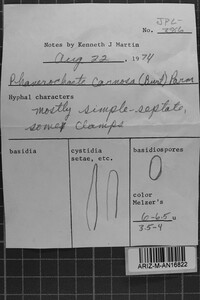 JPL-
No. 446
Notes by Kenneth J Martin
Aug 22, 1974
Phanerochaete carnosa (Burt) Parm
Hyphal characters
mostly simple-septate,
some clamps
basidia
cystidia
setae, etc.
basidiospores
color
Melzer's
6-6.5 u
3.5-4
ARIZ-M-AN16822